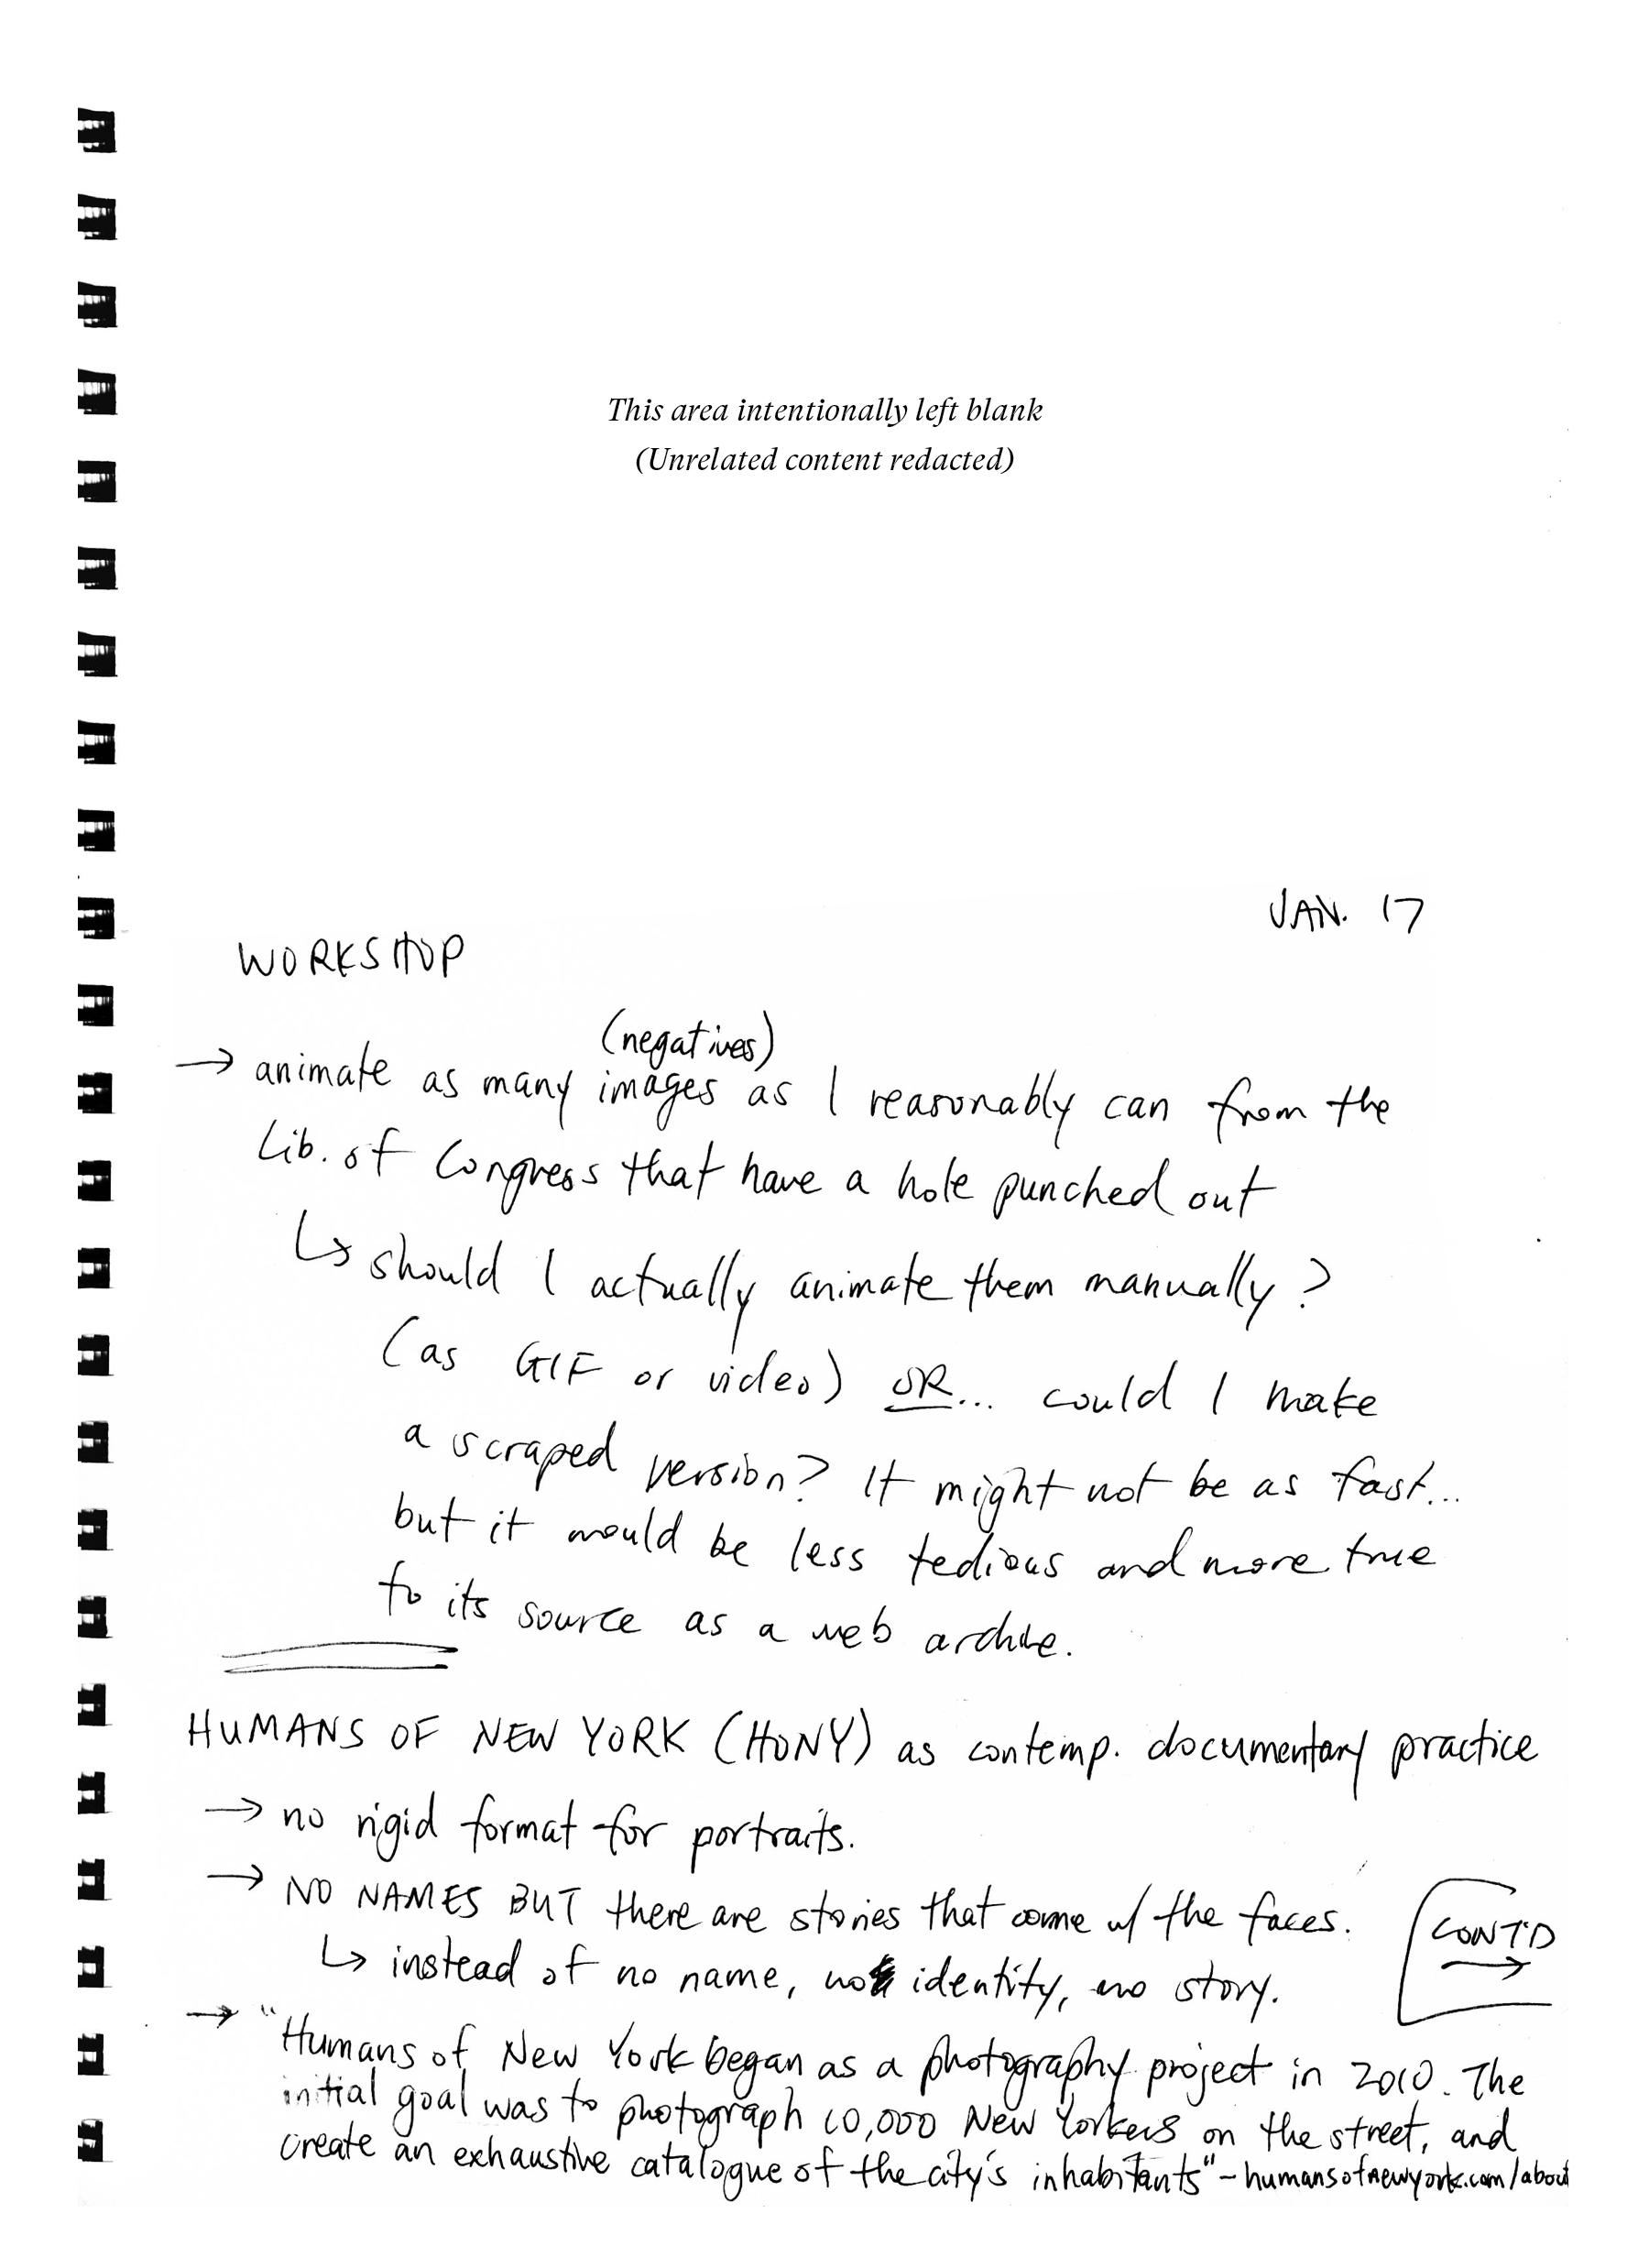 This area intentionally left blank
(Unrelated content redacted)
JAN. 17
WORKSHOP
(negatives)
→ animate as many images as I reasonably can from the
Lib. of Congress that have a hole punched out
↳ should I actually animate them manually?
(as GIF or video) OR... could I make
a scraped version? It might not be as fast...
but it would be less tedious and more true
to its source as a web archive.
HUMANS OF NEW YORK (HONY) as contemp. documentary practice
→ no rigid format for portraits.
→ NO NAMES BUT there are stories that come w/ the faces.
↳ instead of no name, no identity, no story.
CONT'D
→
→ "Humans of New York began as a photography project in 2010. The
initial goal was to photograph 10,000 New Yorkers on the street, and
create an exhaustive catalogue of the city's inhabitants" - humansofnewyork.com/about